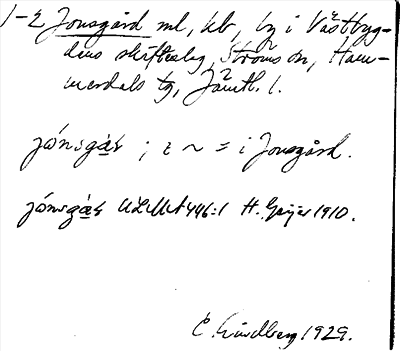 1-2 Jonsgård ml, kb, by i Västbyg-
dens skifteslag, Ströms sn, Ham-
merdals tg, Jämtl. l.
; i ~ = i Jonsgård.
ULMA 446:1 H. Geijer 1910.
Lindberg 1929.